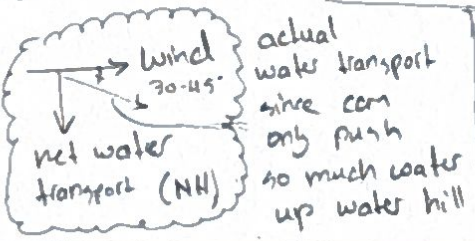 wind
30-45°
net water
transport (NH)
actual
water transport
since can
only push
so much water
up water hill